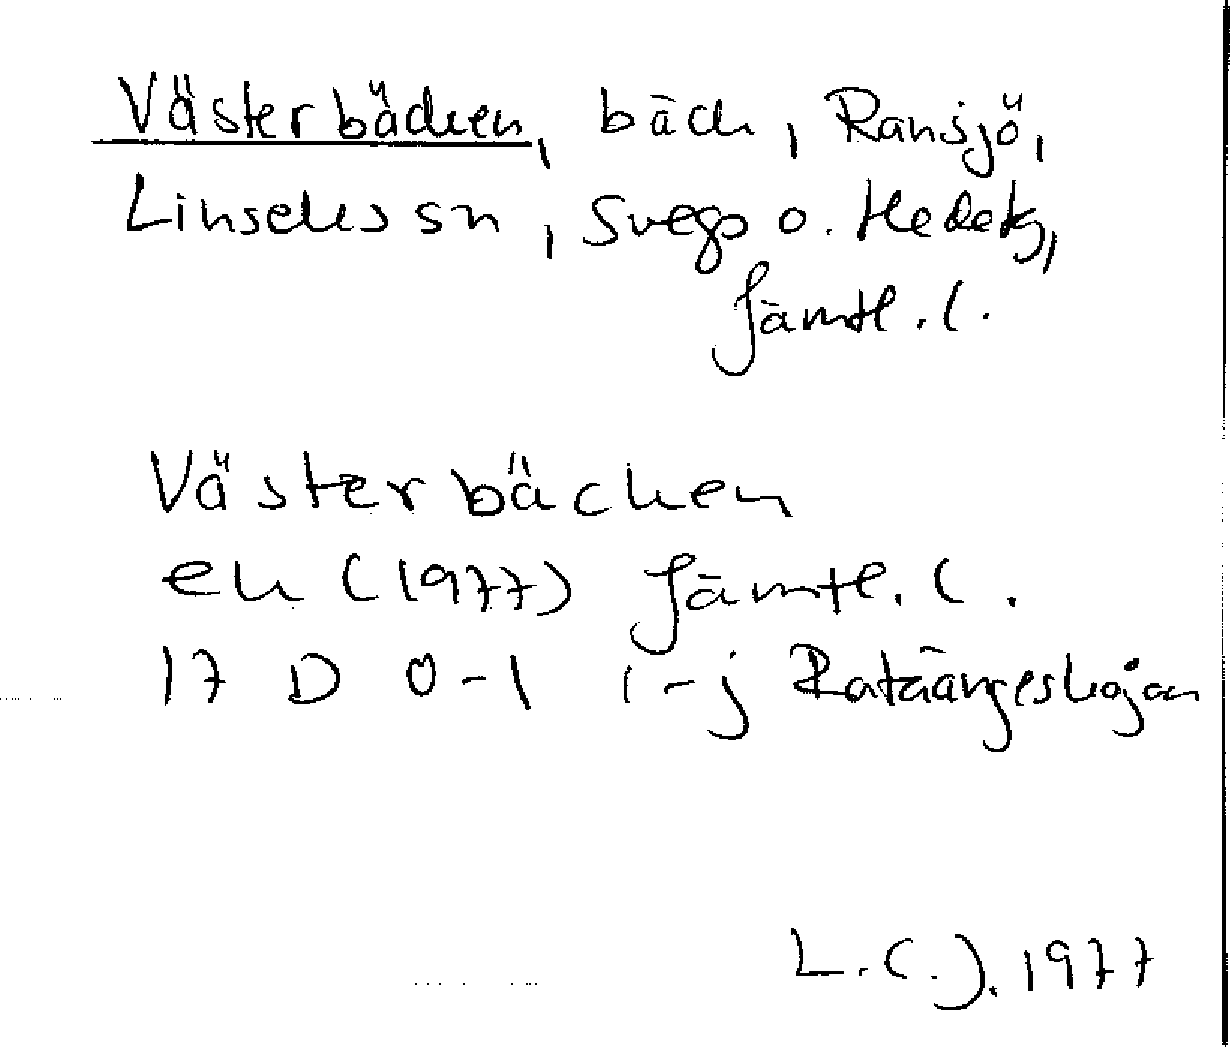 Västerbäcken, bäck, Ransjö,
Linsells sn, Svegs o. Hedetg,
Jämtl. l.
Västerbäcken
ek (1977) Jämtl. l.
17 D 0-1 i-j Ratärängeskojan
L.C.J. 1977